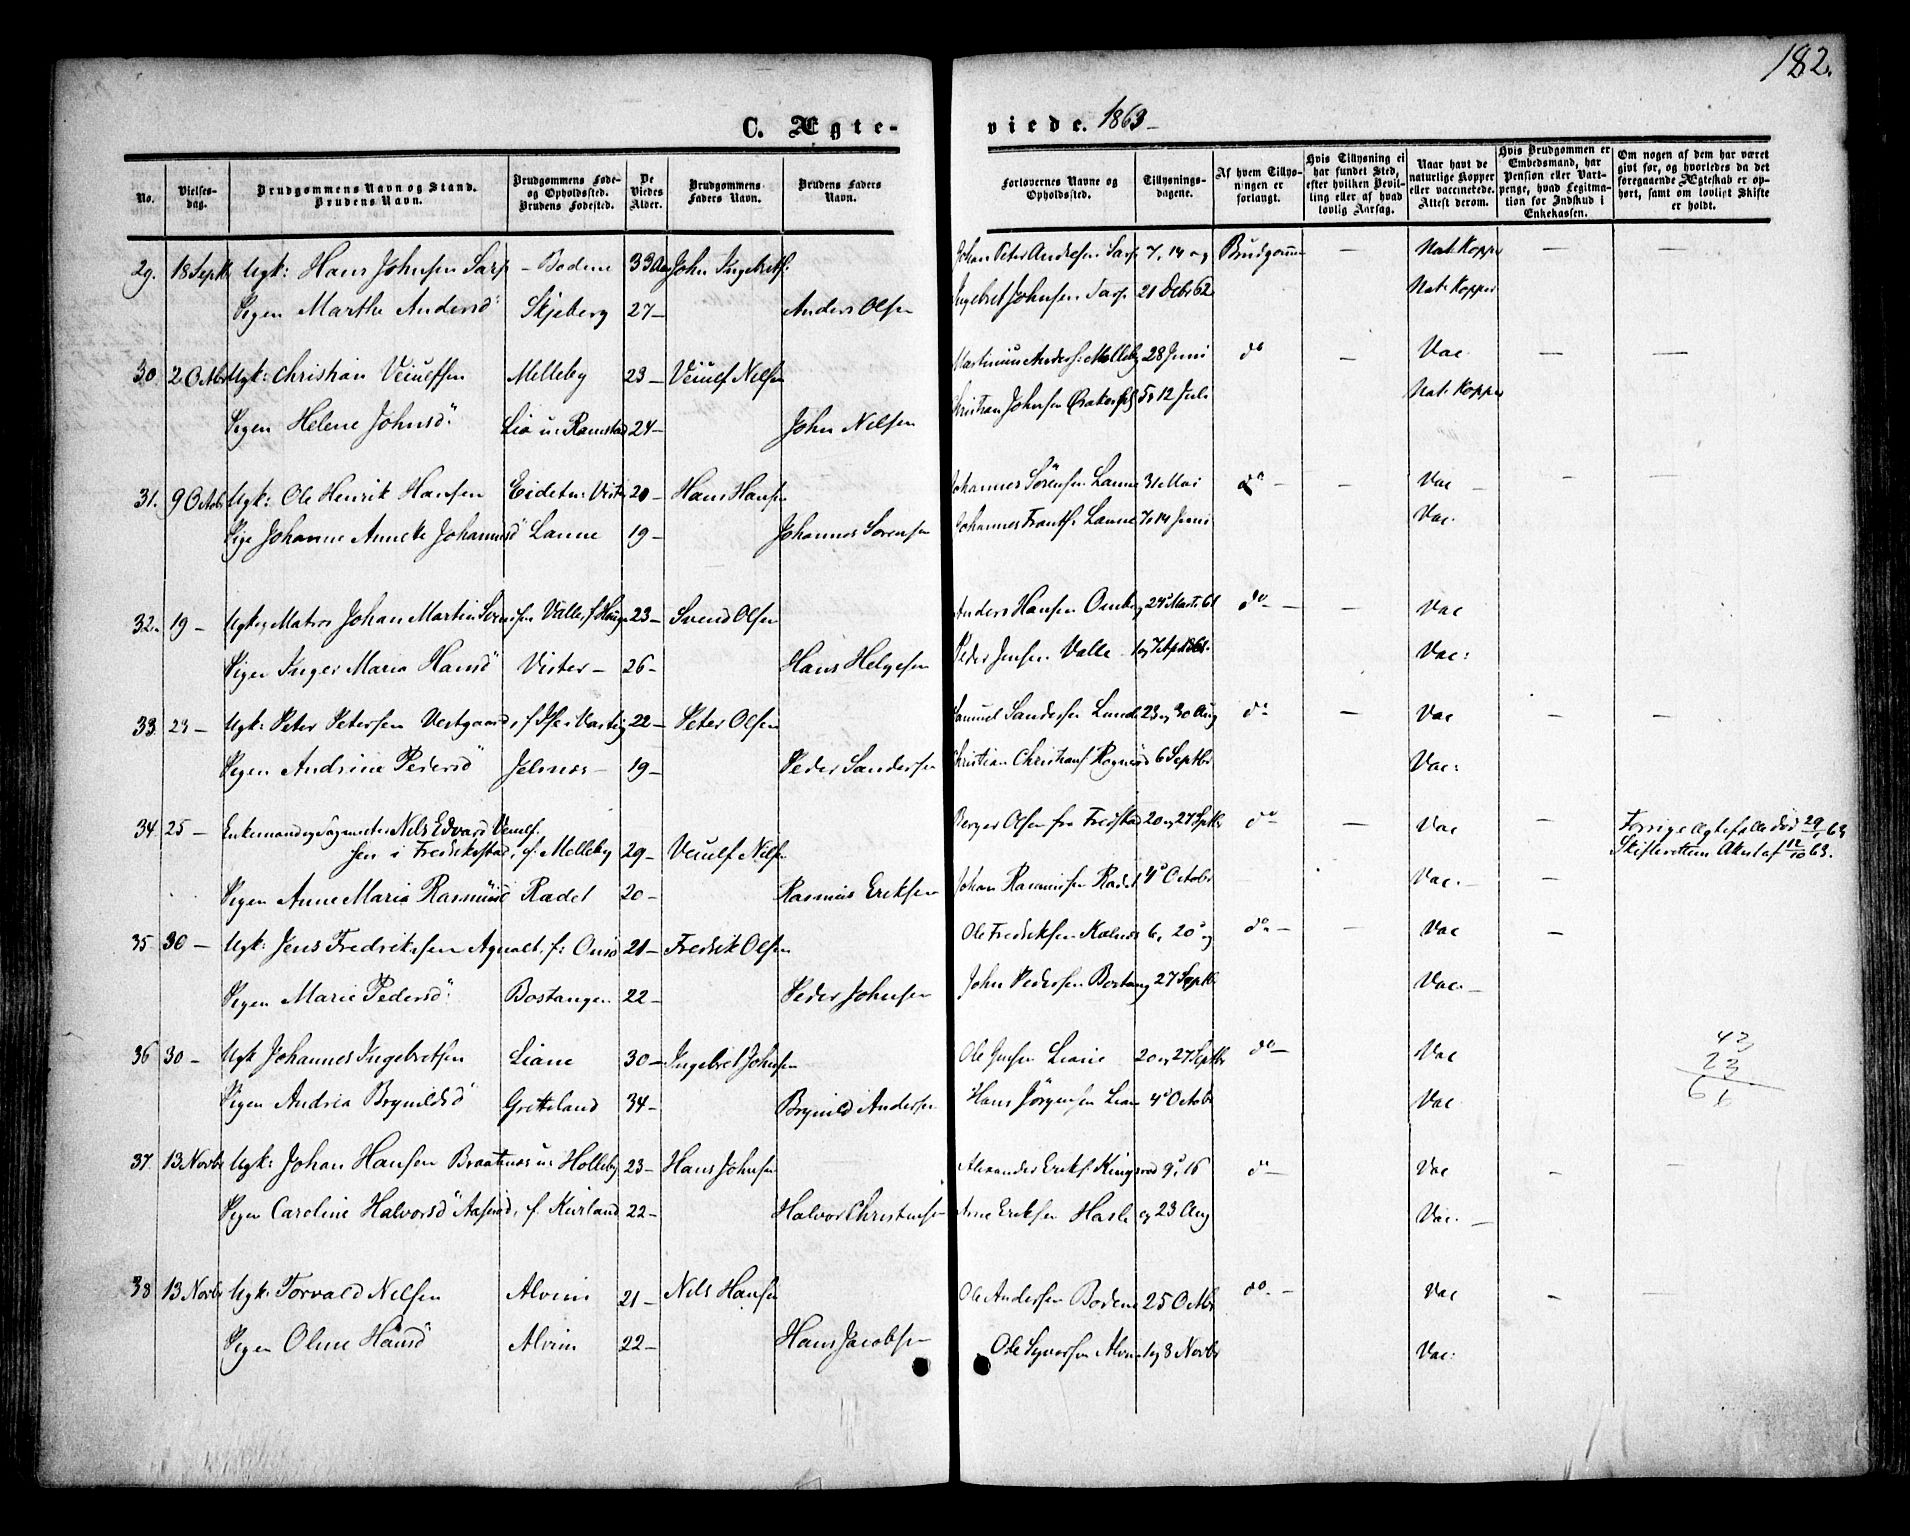 182.
C. Ægte-
viede. 1863
No.
Vielses-
dag.
Brudgommens Navn og Stand.
Brudens Navn.
Brudgommens Føde-
og Opholdssted.
Brudens Fødested.
De
Viedes
Alder.
Brudgommens
Faders Navn.
Brudens Faders
Navn.
Forlovernes Navne og
Opholdssted.
Tillysnings-
dagene.
Af hvem Tillys-
ningen er
forlangt.
Hvis Tillysning ei
har fundet Sted,
efter hvilken Bevil-
ling eller af hvad
lovlig Aarsag.
Naar havt de
naturlige Kopper
eller vaccinerede.
Attest derom.
Hvis Brudgommen er
Embedsmand, har
Pension eller Vart-
penge, hvad Legitima-
tion for Indskud i
Enkekassen.
Om nogen af dem har været
gift før, og hvorledes da det
foregaaende Ægteskab er op-
hørt, samt om lovligt Skifte
er holdt.
29. 18 Septb Ugk: Hans Johnsen Sarp - Bodene 33 Aar John Ingebretss: Johan Peter Andresen Sarp 7, 14 og Brudgommen — Nat. Kopper — —
Pigen Marthe Andersd: Skjeberg 27 — Anders Olsen Ingebret Johnsen Sarp. 21 Decbr 62 Nat: Kopper
30. 2 Octbr Ugk: Christian Veiulfsen Melleby 23 — Veiulf Nilsen Martinius Anders: Melleby 28 Juni do — Vac. — —
Pigen Helene Johnsd: Lia u: Ramstad 24 — John Nilsen Christian Johnsen 5 & 12 Juli Nat: Kopper
31. 9 Octob Ugk: Ole Henrik Hansen Eidet u: Vister 20 — Hans Hansen Johannes Sørensen Lanne 31 Mai do — — Vac — — —
Pige Johanne Annette Johannesd: Lanne 19 — Johannes Sørensen Johannes Frants: Lanne 7 & 14 Juni Vac.
32. 19 — Ugk, Matros Johan Martin Svendsen Valle, f: Haugen 23 — Svend Olsen Anders Hansen Omberg 24 Marts 61 do — — Vac
Pigen Inger Maria Hansd: Vister — 26 — Hans Helgesen Peder Jensen Valle 1 og 7 April 61. Vac:
33. 23 — Ugk: Peter Petersen Vestgaard, f: 22 — Peter Olsen Samuel Sandersen Lunde 23 og 30 Aug do — Vac — —
Pigen Andrine Pedersd: Jelsnes — 19 — Peder Sandersen Christian Christians: 6 Septbr Vac:
34. 25 — Enkemand og Nils Edvard Veiulf-
sen i Fredrikstad, f: Melleby 29 — Veiulf Nilsen Berger Olsen fra Fredstad 20 og 27 Septbr do — Vac — Forrige Ægtefælle død 29/1 63
Skifterettens Attest af 12/10 63.
Pigen Anne Maria Rasmusd: Radet 20 — Rasmus Eriksen Johan Rasmusen Radet 4 Octobr Vac. — —
35. 30 — Ugk: Jens Fredriksen Agnalt, f: Onsø 21 — Fredrik Olsen Ole Fredriksen Kalnes 6, 20 og do — — Vac —
Pigen Marie Pedersd: Bostangen 22 — Peder Johnsen John Pedersen Bostang 27 Septbr Vac. —
36. 30 — Ugk Johannes Ingebretsen Liane 30 — Ingebret Johnsen Ole Jensen Liane 20 og 27 Septbr do — Vac 43
23
66
Pigen Andrea Brynildsd: Gretteland 34 — Brynild Andersen Hans Jørgensen Liane 4 Octobr Vac
37. 13 Novbr Ugk: Johan Hansen Braatnes u: Holleby 23 — Hans Johnsen Alexander Eriks: Kingsrød 9, 16 do — Vac — —
Pigen Caroline Halvorsd: f: Kurland 22 — Halvor Christensen Arne Eriksen Hasle og 23 Aug Vac. —
38 13 Novbr Ugk: Torvald Nilsen Alvim 21 — Nils Hansen Ole Andersen Bodene 25 Octbr do. — Vac — —
Pigen Oline Hansd: Alvim 22 — Hans Jacobsen Ole Syversen Alvim 1 og 8 Novbr Vac: